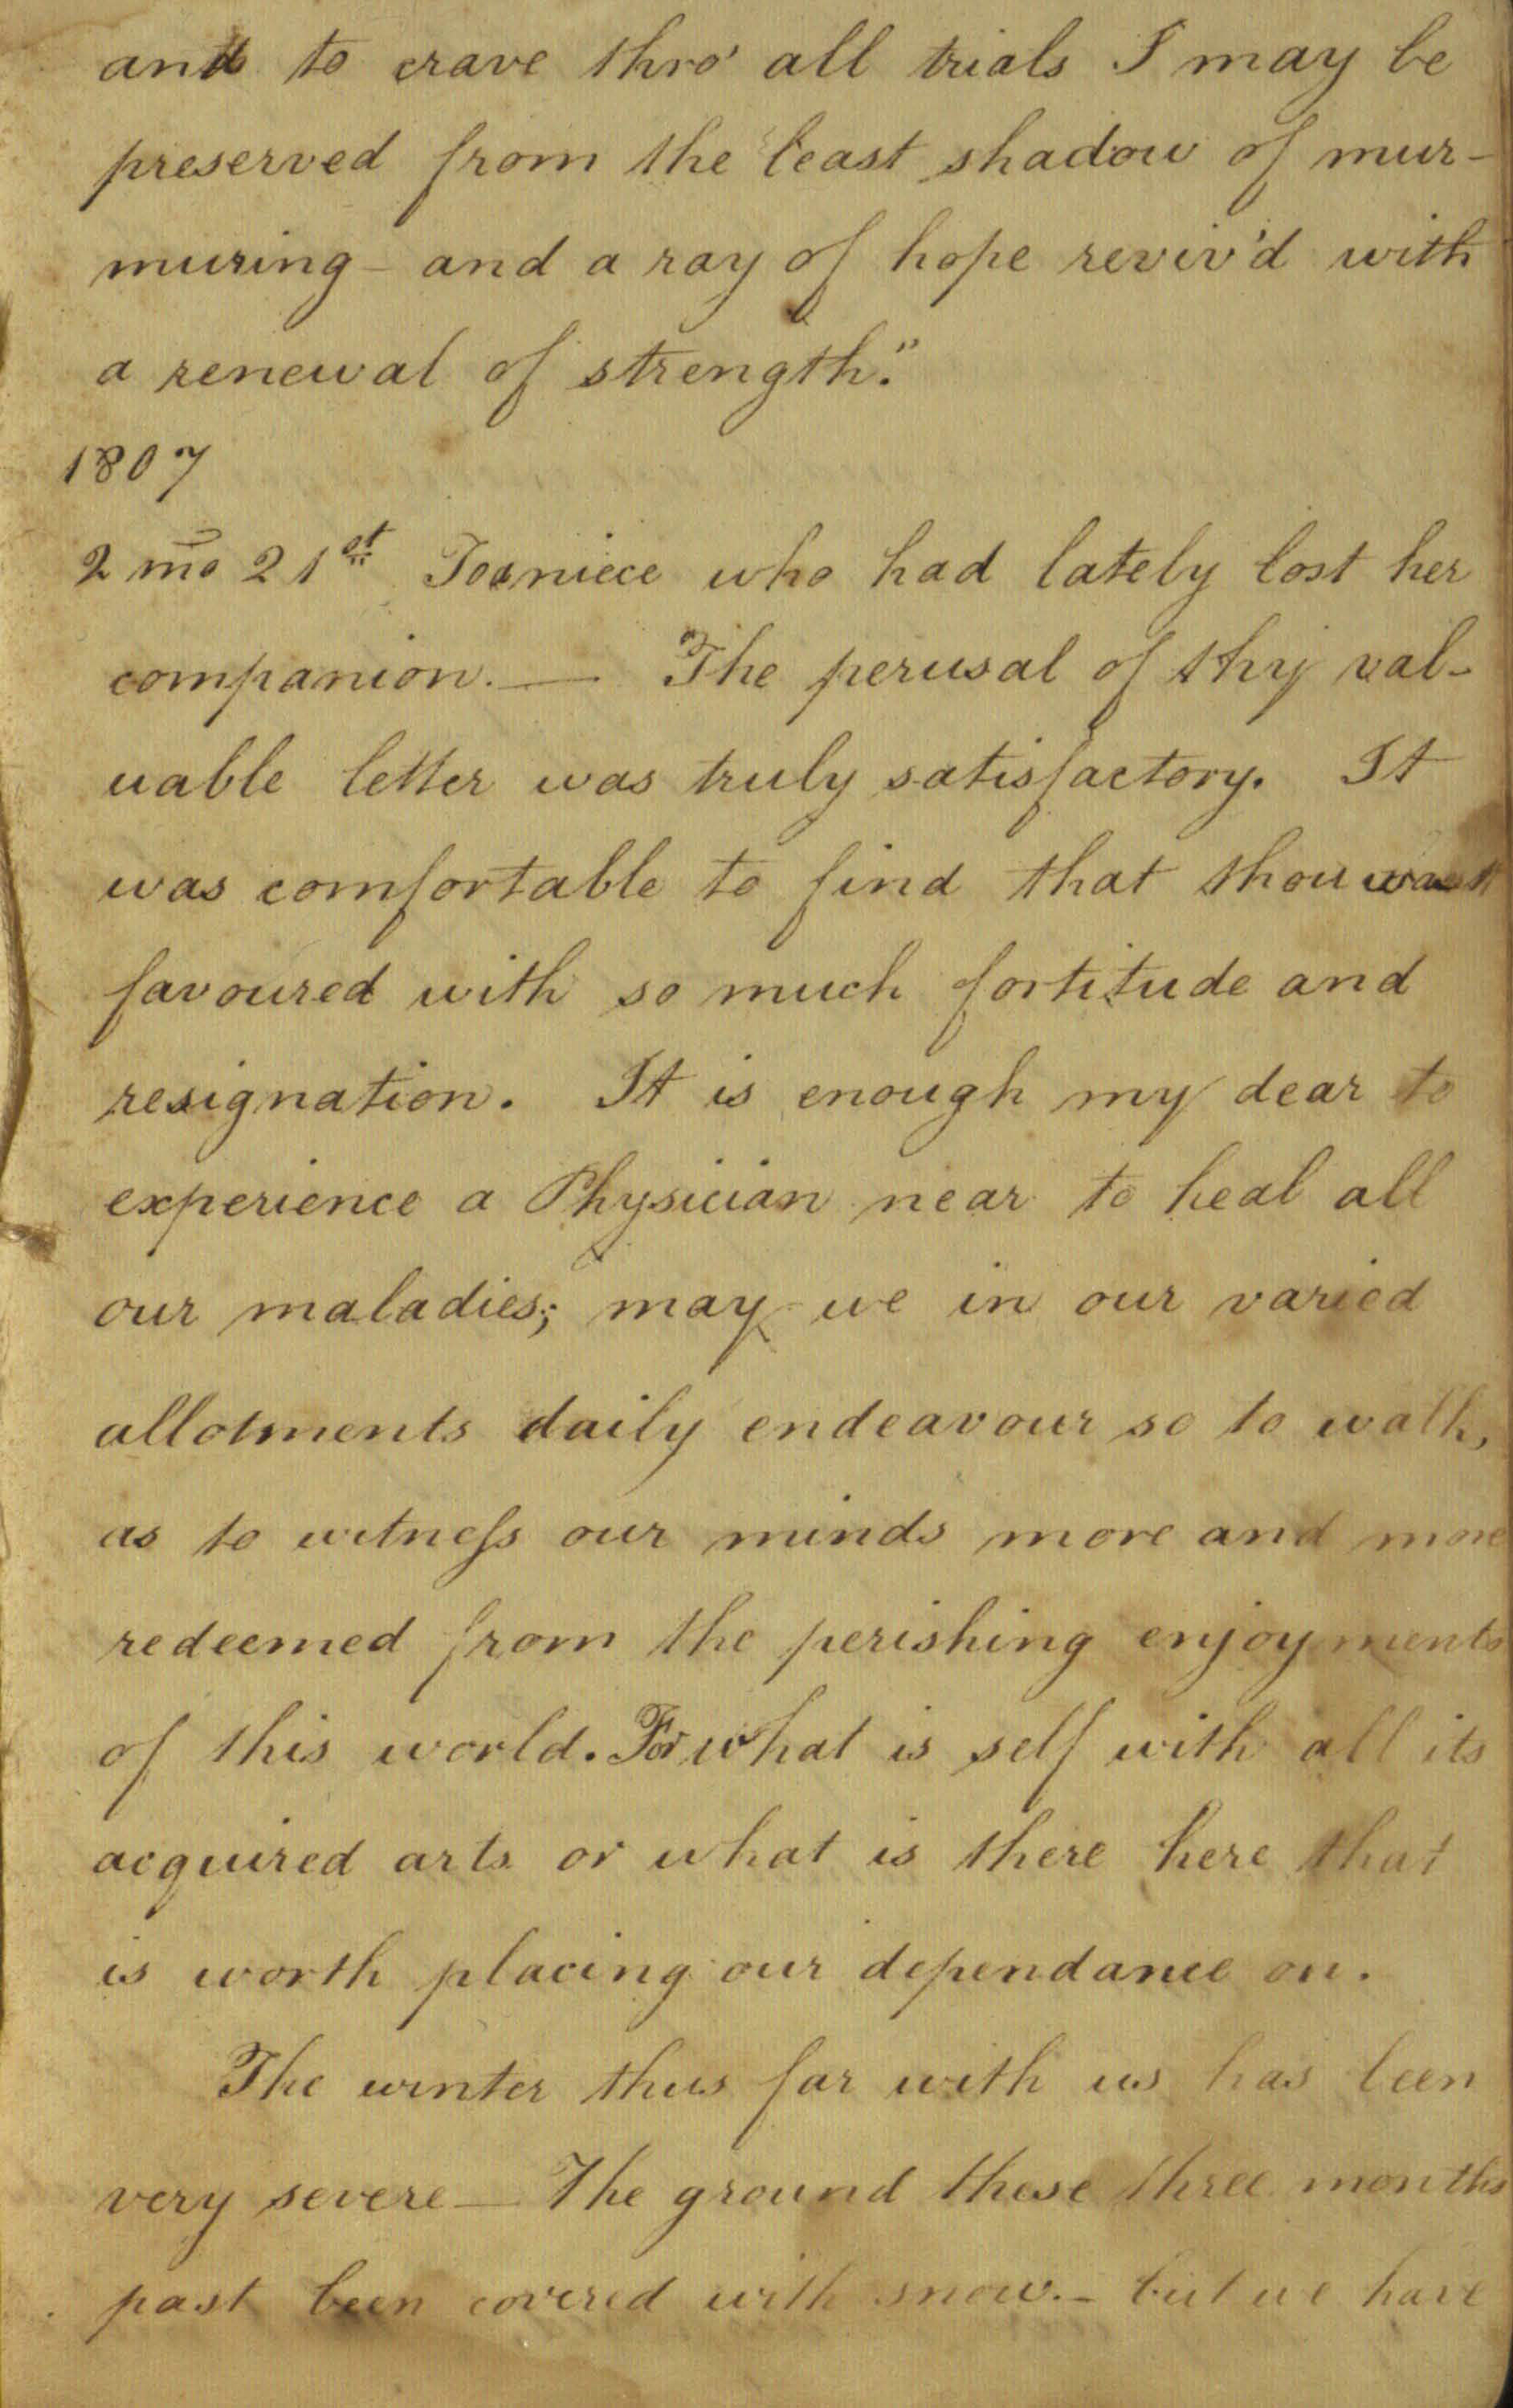 and to crave thro' all trials I may be
preserved from the least shadow of mur-
muring - and a ray of hope reviv'd with
a renewal of strength."
1807
2 mo 21st To a niece who had lately lost her
companion. — The perusal of thy val-
uable letter was truly satisfactory. It
was comfortable to find that thou wast
favoured with so much fortitude and
resignation. It is enough my dear to
experience a Physician near to heal all
our maladies; may we in our varied
allotments daily endeavour so to walk,
as to witness our minds more and more
redeemed from the perishing enjoyments
of this world. For what is self with all its
acquired arts or what is there here that
is worth placing our dependance on.
The winter thus far with us has been
very severe — The ground these three months
past been covered with snow. - but we have